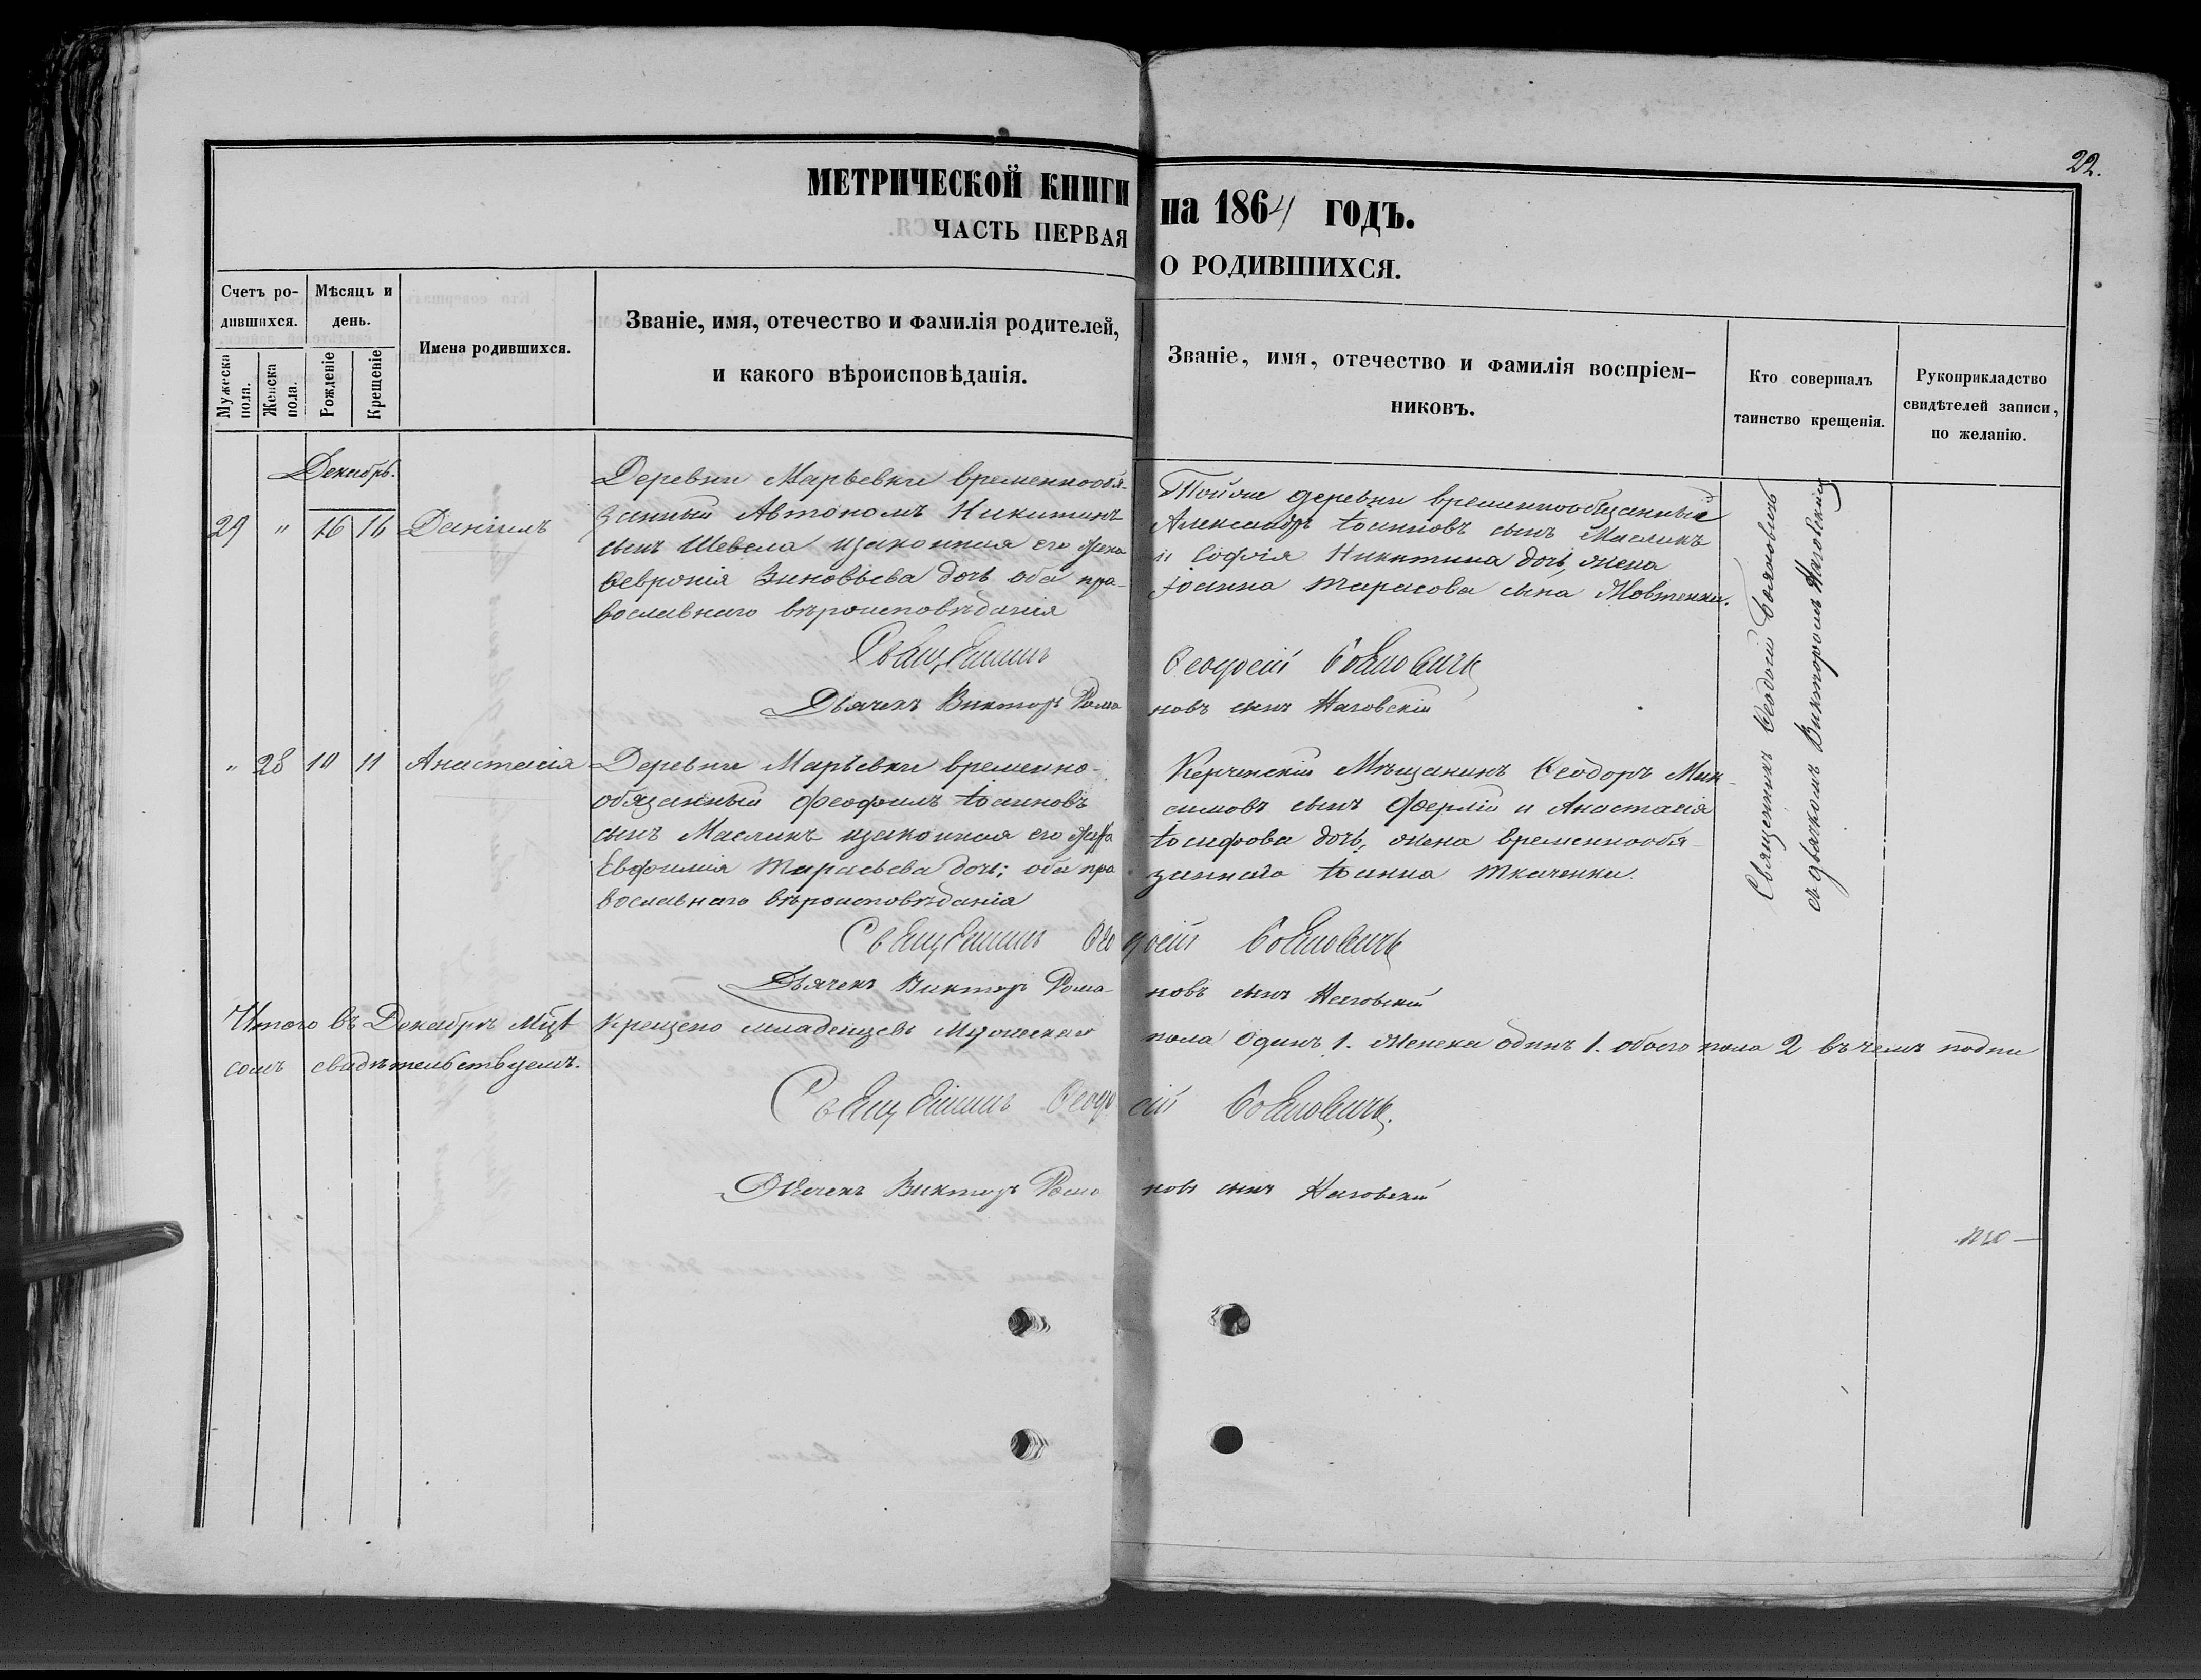 22.
МЕТРИЧЕСКОЙ КНИГИ на 1864 ГОДЪ.
ЧАСТЬ ПЕРВАЯ О РОДИВШИХСЯ.
Счетъ ро-
дившихся.
Мужеска
пола.
Женска
пола.
Мѣсяцъ и
день.
Рожденіе
Крещеніе
Имена родившихся.
Званіе, имя, отечество и фамилія родителей,
и какого вѣроисповѣданія.
Званіе, имя, отечество и фамилія воспріем-
никовъ.
Кто совершалъ
таинство крещенія.
Рукоприкладство
свидѣтелей записи,
по желанію.
Декабрь.
29 " 16 16 Даніилъ
Деревни Марьевки временнообя-
занный Автономъ Никитинъ
сынъ Шевела изаконная его жена
Ѳевронія Зиновьева дочь оба пра-
вославнаго вѣроисповѣданія
Тойже деревни временнообязанный
Александръ Іоанновъ сынъ Маслинъ
и Софія Никитина дочь, жена
Іоанна Тарасова сына Жовтенка.
Священникъ Ѳеодосій Бояновичъ
съ дьячкомъ Викторомъ Наговскимъ
Священникъ Ѳеодосій Бояновичъ
Дьячекъ Викторъ Романовъ сынъ Наговскій
" 28 10 11 Анастасія
Деревни Марьевки временно-
обязанный Феофилъ Іоанновъ
сынъ Маслинъ изаконная его жена
Евфимія Тарасьева дочь; оба пра
вославнаго вѣроисповѣданія
Керченскій Мѣщанинъ Ѳеодоръ Мак-
симовъ сынъ Ферлій и Анастасія
Іосифова дочь, жена временнообя-
заннаго Іоанна Ткаченки.
Священникъ Ѳеодосій Бояновичъ
Дьячекъ Викторъ Романовъ сынъ Наговскій
Итого въ Декабрѣ Мцѣ Крещено младенцевъ Мужескаго пола одинъ 1. Женска одинъ 1. обоего пола 2 въ чемъ подпи
сомъ свидѣтельствуемъ.
Священникъ Ѳеодосій Бояновичъ.
Дьячекъ Викторъ Романовъ сынъ Наговскій